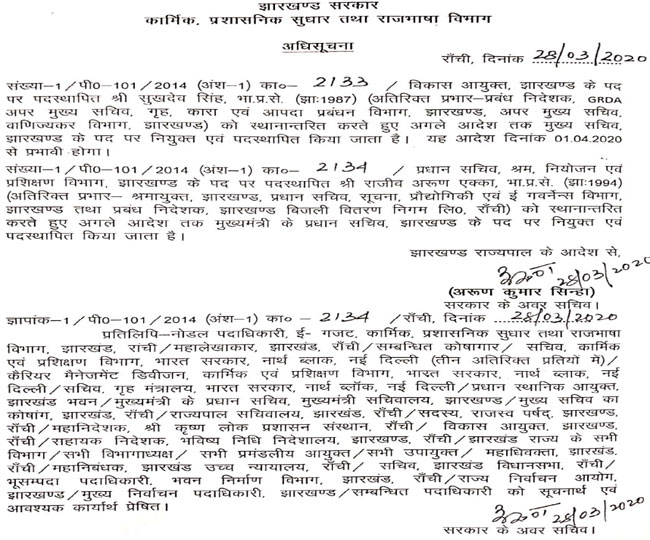 झारखण्ड सरकार
कार्मिक, प्रशासनिक सुधार तथा राजभाषा विभाग
अधिसूचना
राँची, दिनांक 28/03/2020
संख्या-1/पी0-101/2014 (अंश-1) का०- 2133 / विकास आयुक्त, झारखण्ड के पद
पर पदस्थापित श्री सुखदेव सिंह, भा.प्र.से. (झाः1987) (अतिरिक्त प्रभार–प्रबंध निदेशक, GRDA
अपर मुख्य सचिव, गृह, कारा एवं आपदा प्रबंधन विभाग, झारखण्ड, अपर मुख्य सचिव,
वाणिज्यकर विभाग, झारखण्ड) को स्थानान्तरित करते हुए अगले आदेश तक मुख्य सचिव,
झारखण्ड के पद पर नियुक्त एवं पदस्थापित किया जाता है। यह आदेश दिनांक 01.04.2020
से प्रभावी होगा।
संख्या-1/पी0-101/2014 (अंश-1) का०- 2134 / प्रधान सचिव, श्रम, नियोजन एवं
प्रशिक्षण विभाग, झारखण्ड के पद पर पदस्थापित श्री राजीव अरूण एक्का, भा.प्र.से. (झाः1994)
(अतिरिक्त प्रभार– श्रमायुक्त, झारखण्ड, प्रधान सचिव, सूचना, प्रौद्योगिकी एवं ई गवर्नेन्स विभाग,
झारखण्ड तथा प्रबंध निदेशक, झारखण्ड बिजली वितरण निगम लि0, राँची) को स्थानान्तरित
करते हुए अगले आदेश तक मुख्यमंत्री के प्रधान सचिव, झारखण्ड के पद पर नियुक्त एवं
पदस्थापित किया जाता है।
झारखण्ड राज्यपाल के आदेश से,
28/03/2020
(अरूण कुमार सिन्हा)
सरकार के अवर सचिव।
ज्ञापांक-1/पी0-101/2014 (अंश-1) का०- 2134 /राँची, दिनांक 28/03/2020
प्रतिलिपि-नोडल पदाधिकारी, ई- गजट, कार्मिक, प्रशासनिक सुधार तथा राजभाषा
विभाग, झारखंड, रांची/महालेखाकार, झारखंड, राँची/सम्बन्धित कोषागार/ सचिव, कार्मिक
एवं प्रशिक्षण विभाग, भारत सरकार, नार्थ ब्लाक, नई दिल्ली (तीन अतिरिक्त प्रतियों में)/
कैरियर मैनेजमेंट डिवीजन, कार्मिक एवं प्रशिक्षण विभाग, भारत सरकार, नार्थ ब्लाक, नई
दिल्ली/सचिव, गृह मंत्रालय, भारत सरकार, नार्थ ब्लॉक, नई दिल्ली/प्रधान स्थानिक आयुक्त,
झारखंड भवन/मुख्यमंत्री के प्रधान सचिव, मुख्यमंत्री सचिवालय, झारखण्ड/मुख्य सचिव का
कोषांग, झारखंड, राँची/राज्यपाल सचिवालय, झारखंड, राँची/सदस्य, राजस्व पर्षद्, झारखण्ड,
राँची/महानिदेशक, श्री कृष्ण लोक प्रशासन संस्थान, राँची/ विकास आयुक्त, झारखण्ड,
राँची/सहायक निदेशक, भविष्य निधि निदेशालय, झारखण्ड, राँची/झारखंड राज्य के सभी
विभाग/सभी विभागाध्यक्ष/ सभी प्रमंडलीय आयुक्त/सभी उपायुक्त/ महाधिवक्ता, झारखंड,
राँची/महानिबंधक, झारखंड उच्च न्यायालय, राँची/ सचिव, झारखंड विधानसभा, राँची/
भूसम्पदा पदाधिकारी, भवन निर्माण विभाग, झारखंड, राँची/राज्य निर्वाचन आयोग,
झारखण्ड/मुख्य निर्वाचन पदाधिकारी, झारखण्ड/सम्बन्धित पदाधिकारी को सूचनार्थ एवं
आवश्यक कार्यार्थ प्रेषित।
28/03/2020
सरकार के अवर सचिव।